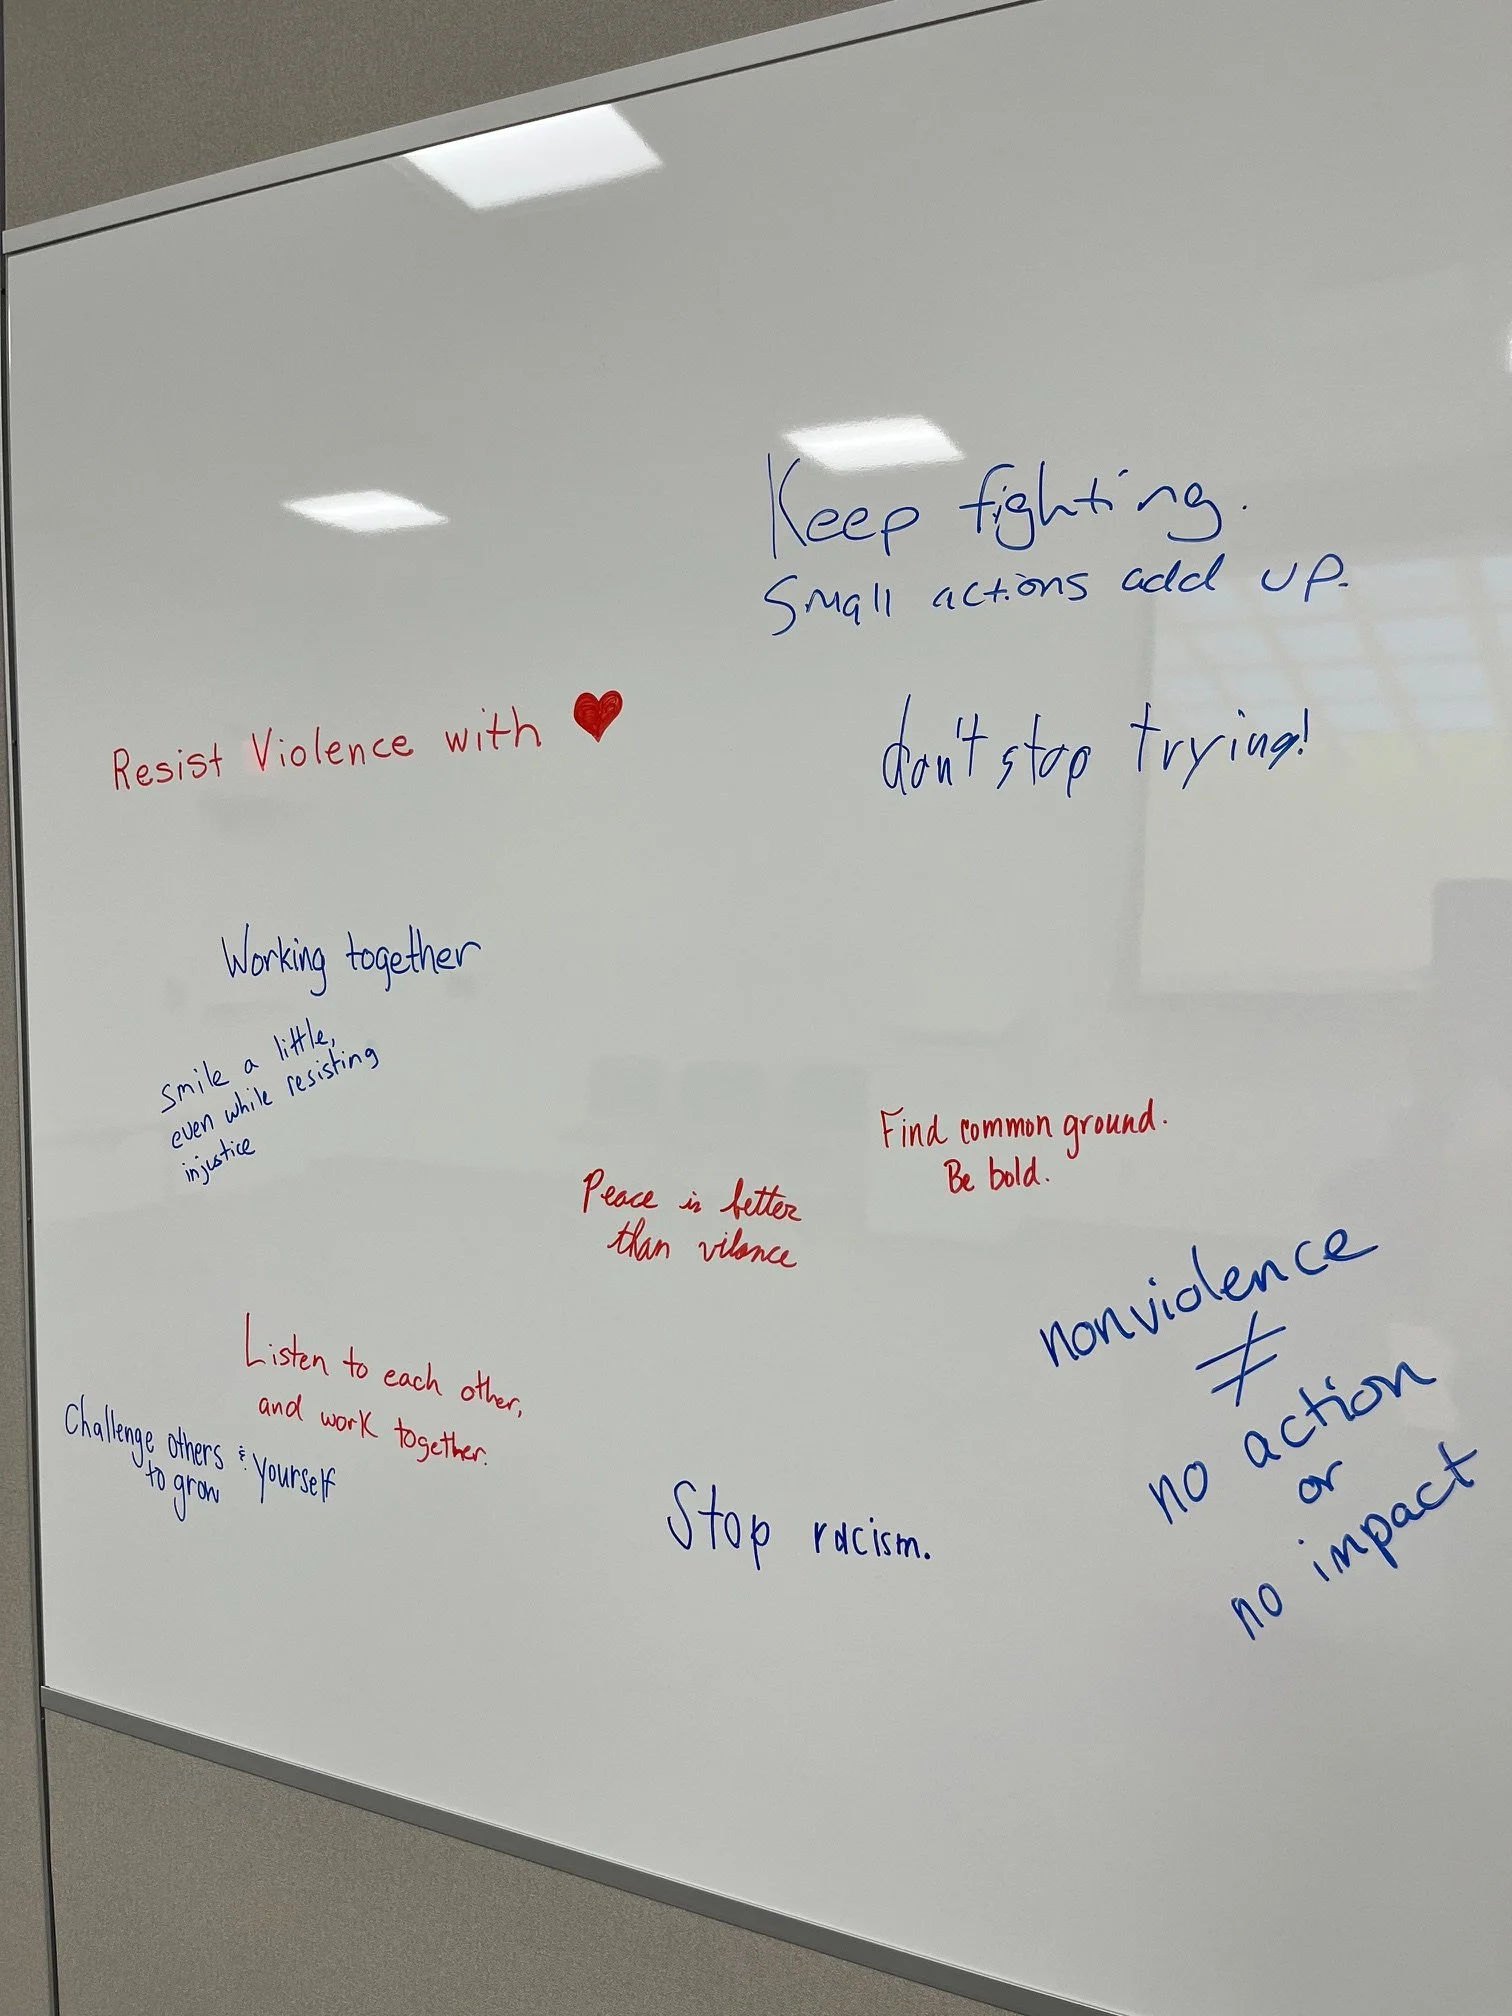 Keep fighting.
Small actions add up.
Resist Violence with ❤
don't stop trying!
Working together
Smile a little,
even while resisting
injustice
Find common ground.
Be bold.
Peace is better
than vilence
nonviolence
≠
no action
or
no impact
Listen to each other,
and work together.
Challenge others & yourself
to grow
Stop racism.